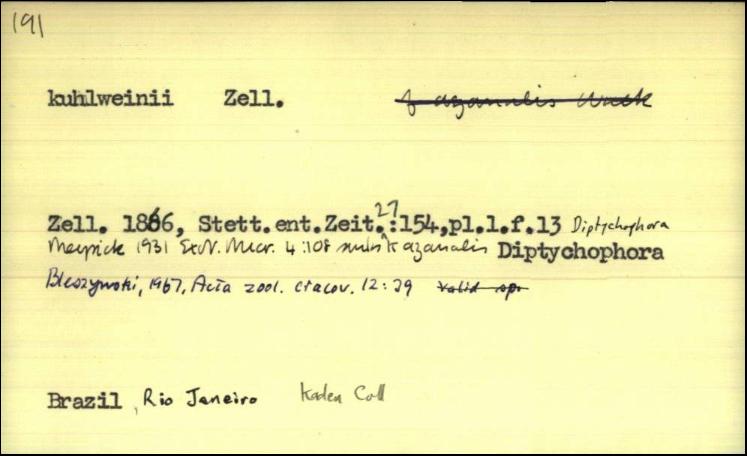 191
kuhlweinii Zell. f azanalis Walk
Zell. 1866, Stett.ent.Zeit. 27:154,pl.1.f.13 Diptychophora
Meyrick 1931 Ex. Micr. 4:108 azanalis Diptychophora
Bleszynski, 1967, Acta zool. cracov. 12:39 valid sp.
Brazil, Rio Janeiro Kaden Coll